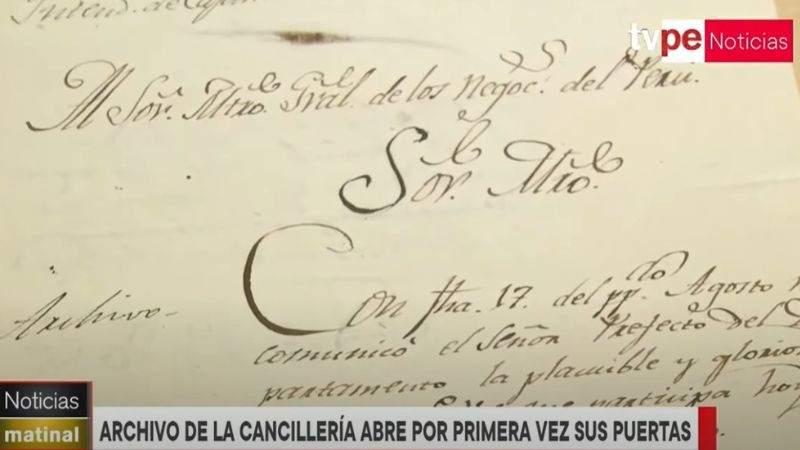 Intend. de
tvpe Noticias
Al Sor. Mtro. Gral. de los Negocs. del Perú.
Sor. Mtro.
Archivo
Con fha. 17. del ppdo. Agosto
comunicó el Señor Prefecto del
partamento la plausible y glorio
que participa hoy
Noticias
matinal
ARCHIVO DE LA CANCILLERÍA ABRE POR PRIMERA VEZ SUS PUERTAS